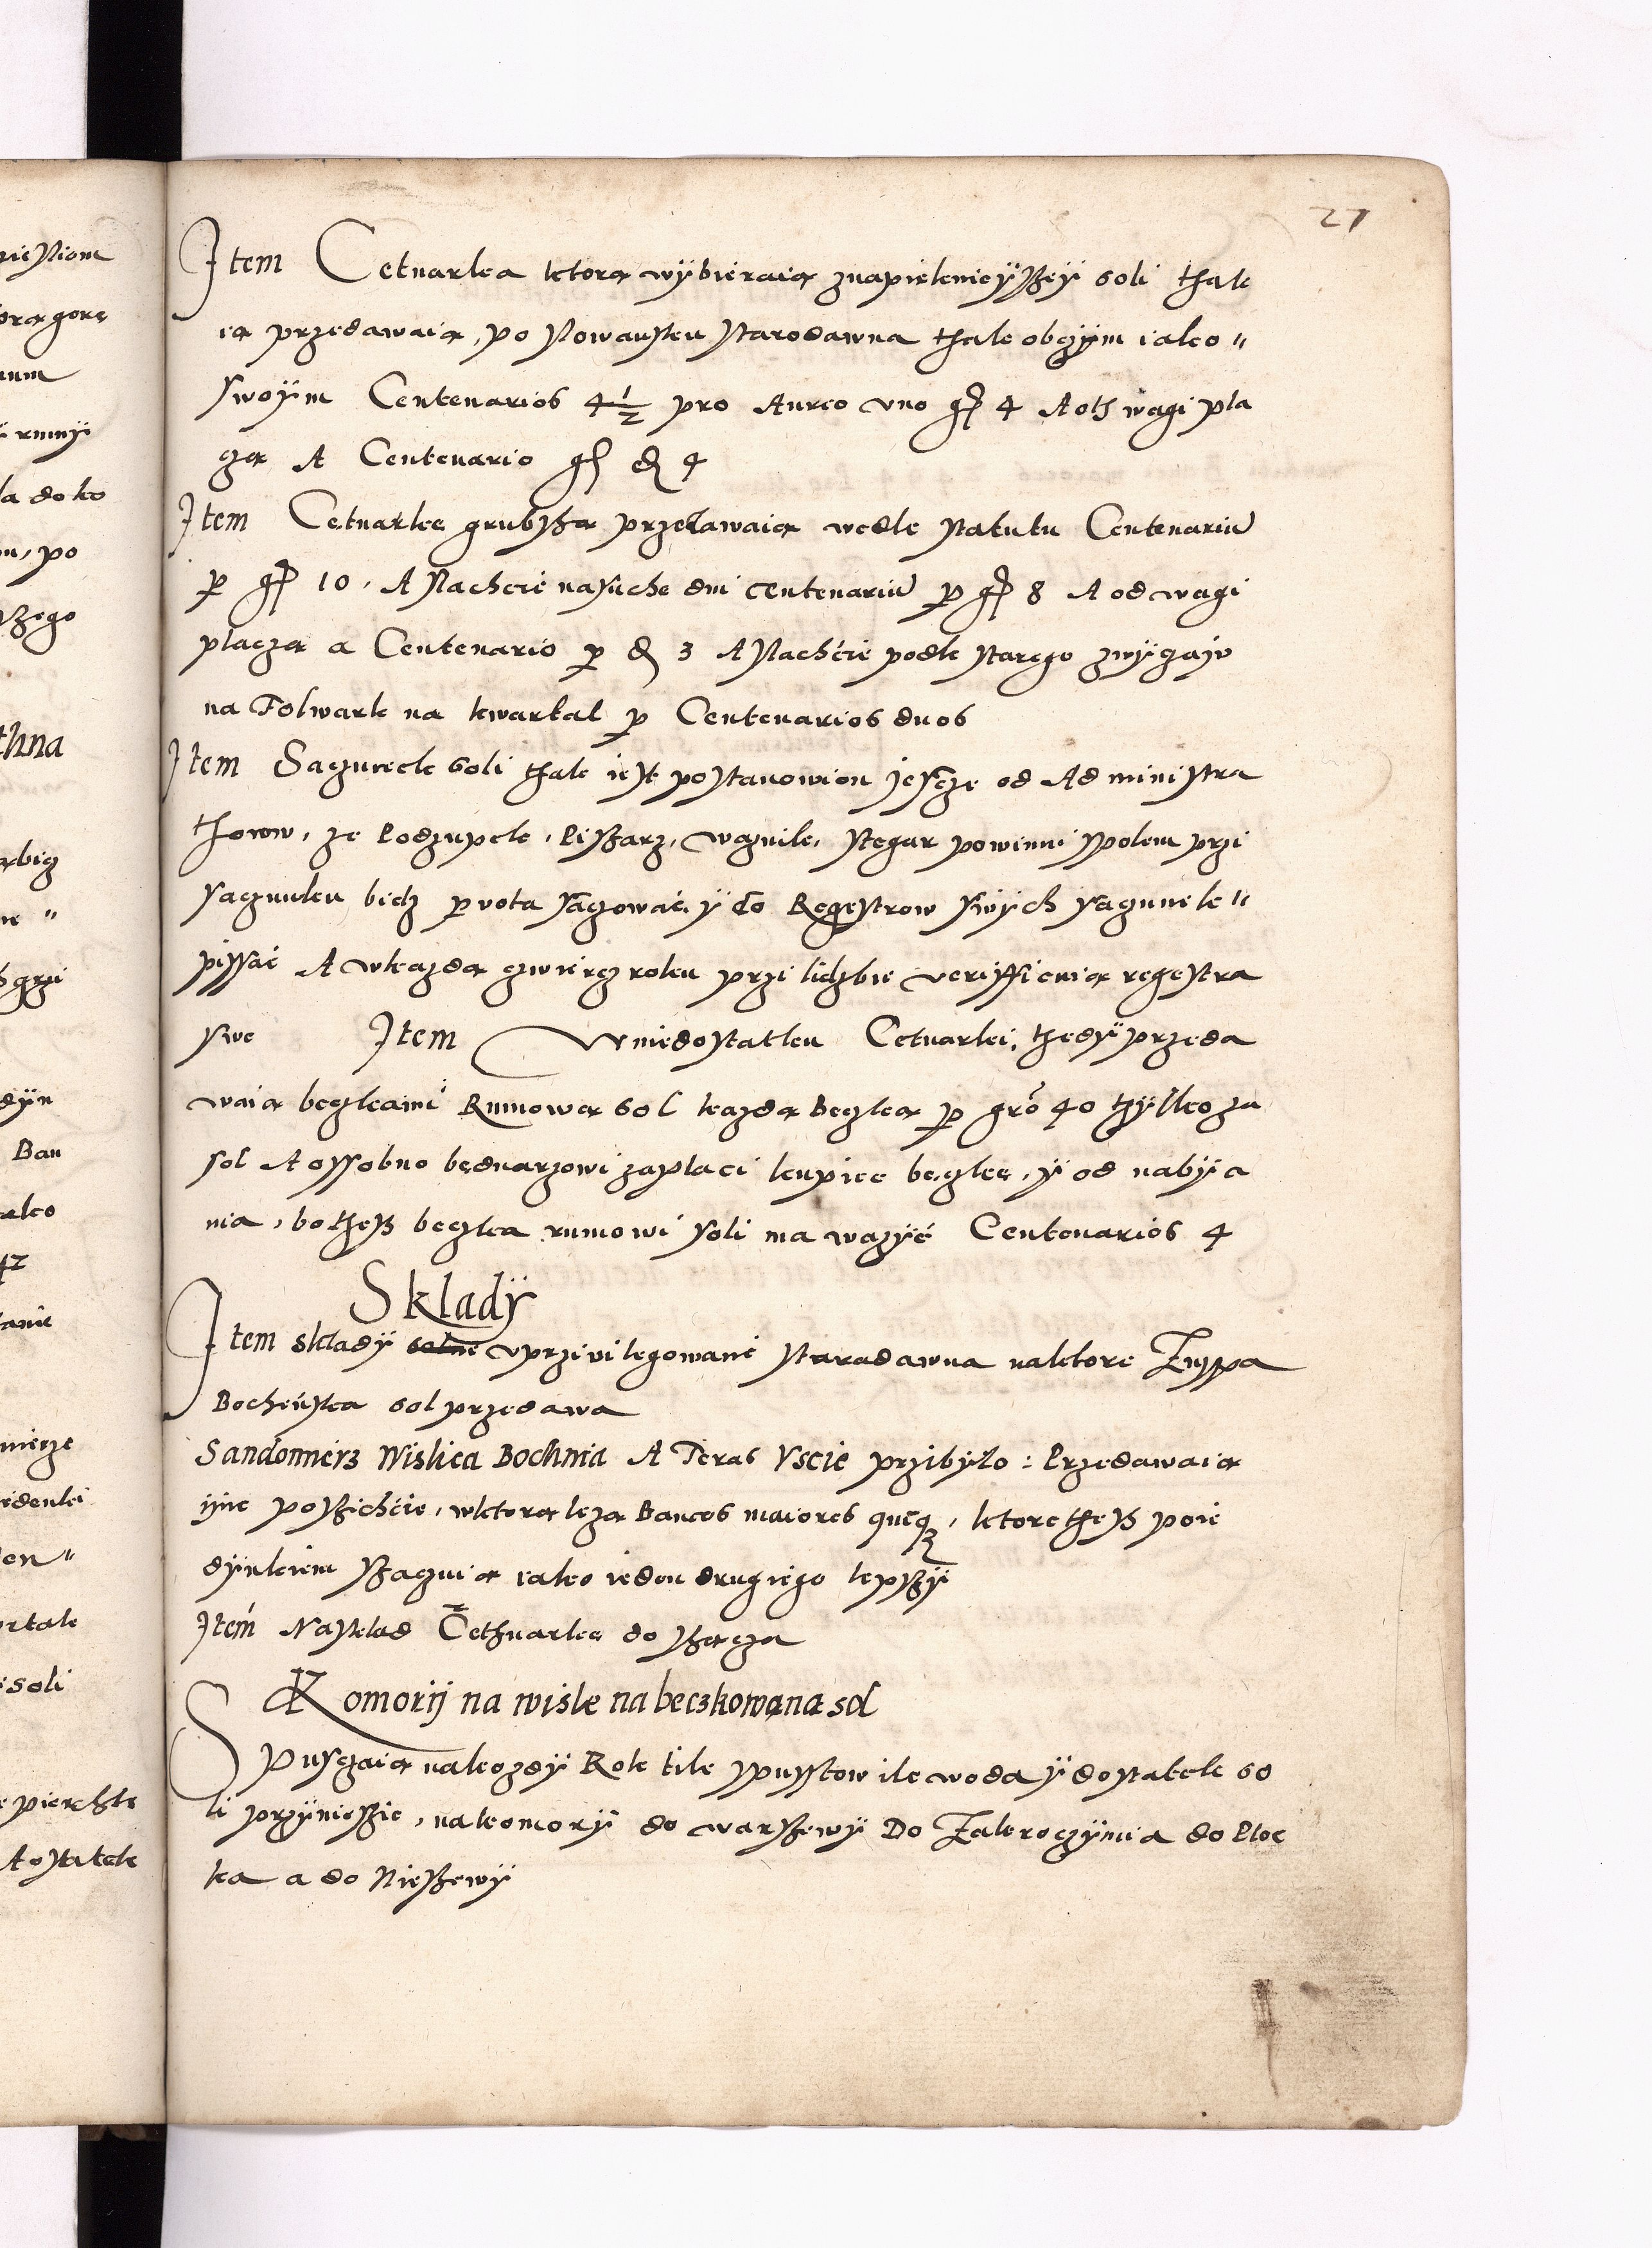 27
Item Cetnarka ktorą wÿbieraią znapiekniejÿßeÿ soli thak
ią przedawaią, po Slowansku starodawna thak obczÿm iako„
swoÿm Centenarios 4½ pro Aureo vno gℓ 4 A oth wagi pla
czą A Centenario gℓ ₰ 4
Item Cetnarkę grubßą przedawaią wedle statutu Centenariū
ꝑ gℓ 10, A Slachcie nasuche dni centenariū ꝑ gℓ 8 A od wagi
placzą a Centenario ꝑ ₰ 3 A Slachćie podle starego zwÿczaju
na Folwark na kwartal ꝑ Centenarios duos
Item Saczunek soli thak iest postanowion jescze od Administra
thorow, ze Podzupek, Pissarz, waznik, stegar powinni spolem przi
saczunku bicz ꝑ vota saczowaći ÿ do Regestrow swÿch saczunek„
pissać A wkazdą czwiercz roku przi liczbie veriffikuią regestra
swe Item W niedostatku Cetnarki, thedÿ przeda
waią beczkami Rumową sol kazdą Beczką ꝑ gro 40 thÿlko za
sol A ossobno bednarzowi zaplaci kupiec beczkę, ÿ od nabÿa
nia, bo theß beczka rumowi soli ma wazÿć Centenarios 4
Skladÿ
Item skladÿ solne vprzivilegowane staradawna naktore Zuppa
Bocheńska sol przedawa
Sandomierz Wislica Bochnia A Teras Vscie przibÿlo: Przedawaią
ÿne poßichćie, wktorą leza Bancos maiores quęq₃, ktore theß poie
dÿnkiem ßacuią iako ieden drugiego lepßÿ
Item Nasklad Cethnarkę do ßącza
Komorij na wisle na beczkowana sol
Spusczaią nakozdÿ Rok tile spusstow ile woda ÿ dostatek so
li przÿnießie, na komorÿ do warßewÿ Do Zakroczÿmia do Ploc
ka a do Nießewÿ